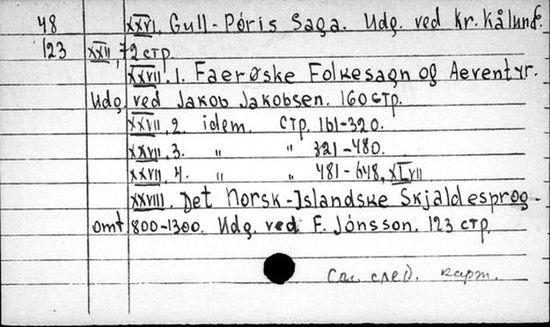 48 XXVI. Gull-Póris Saga. Udg. ved Kr. Kålund.
123 XXII, 72 стр.
XXVII. 1. Faerøske Folkesagn og Aeventyr.
Udg. ved Jakob Jakobsen. 160 стр.
XXVII, 2. idem. стр. 161-320.
XXVII, 3. " " 321-480.
XXVII, 4. " " 481-648, XLVII
XXVIII. Det Norsk-Islandske Skjaldesprog-
omt 800-1300. Udg. ved F. Jónsson. 123 стр.
См. след. карт.